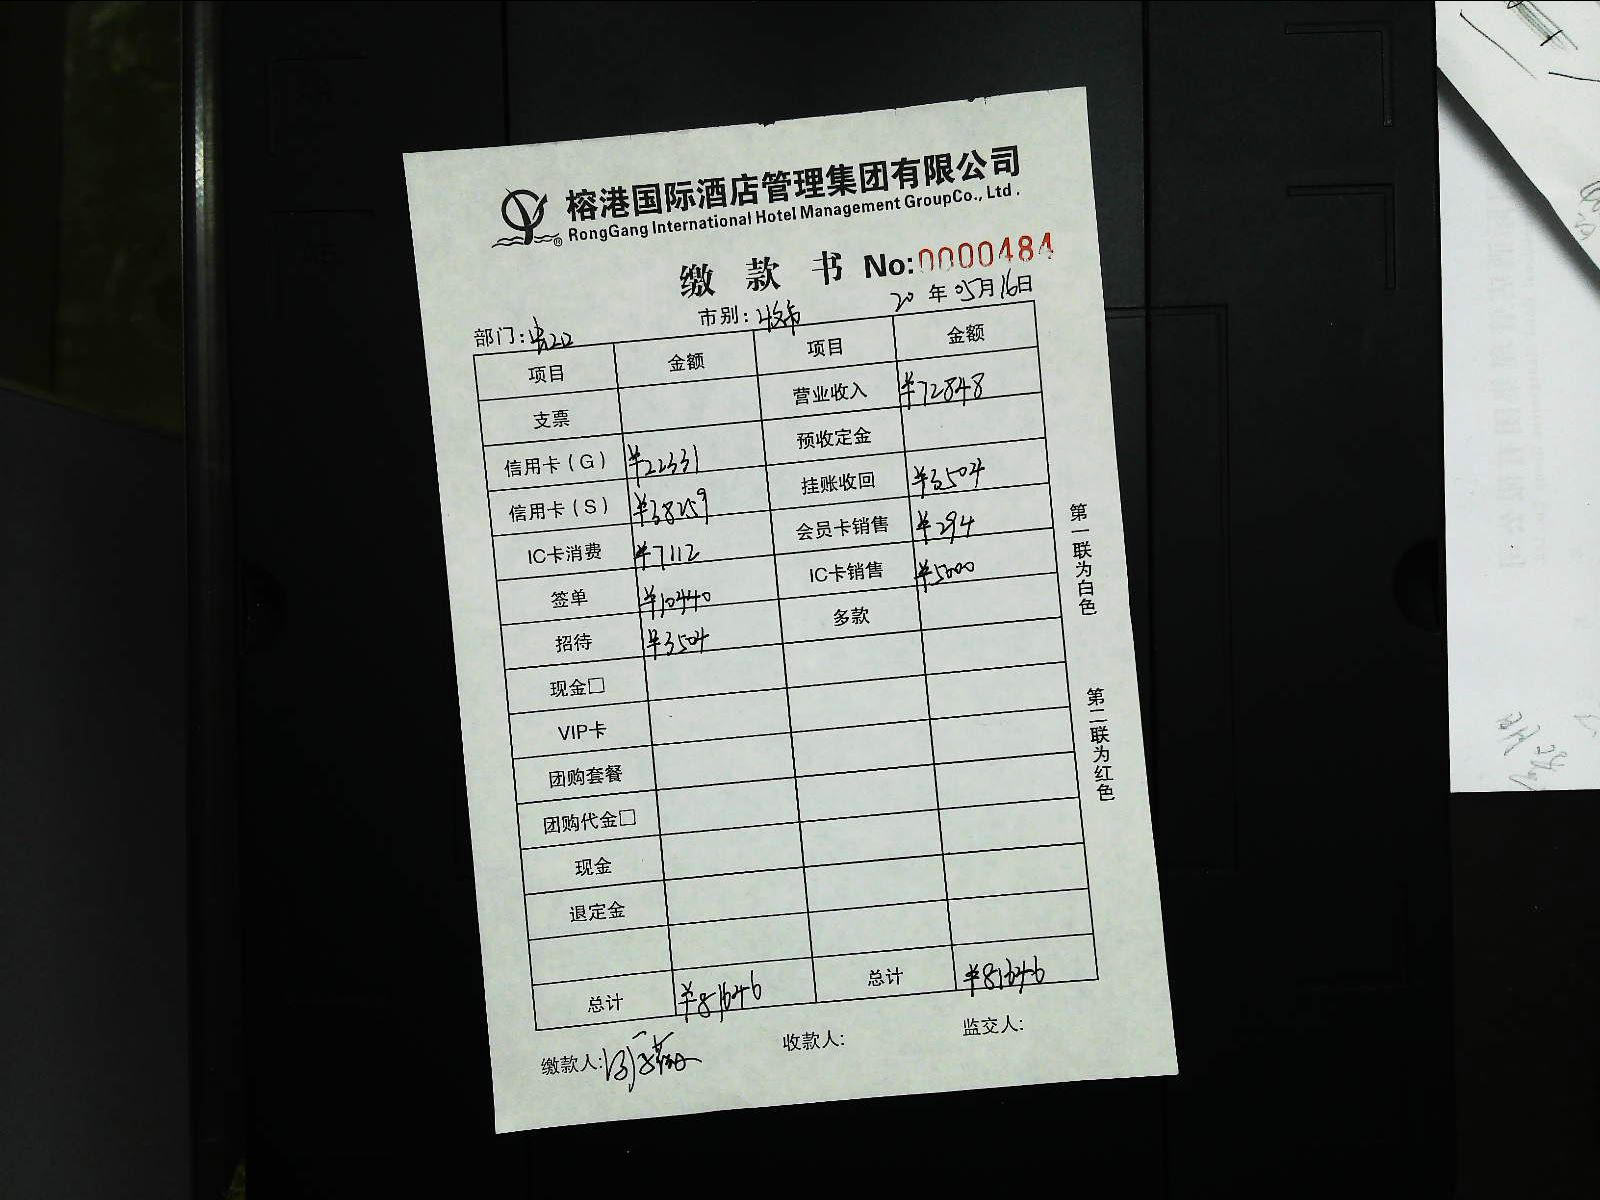 榕港国际酒店管理集团有限公司
RongGang International Hotel Management GroupCo., Ltd.
缴 款 书 No:0000484
部门: 市别: 20 年 05月16日
项目 金额 项目 金额
支票 营业收入 ¥72848
信用卡（G） ¥22331 预收定金
信用卡（S） ¥38259 挂账收回 ¥3504
IC卡消费 ¥7112 会员卡销售 ¥294
签单 ¥10440 IC卡销售 ¥5000
招待 ¥3504 多款
现金□
VIP卡
团购套餐
团购代金□
现金
退定金
总计 ¥81646 总计 ¥81646
缴款人: 收款人: 监交人:
第一联为白色
第二联为红色